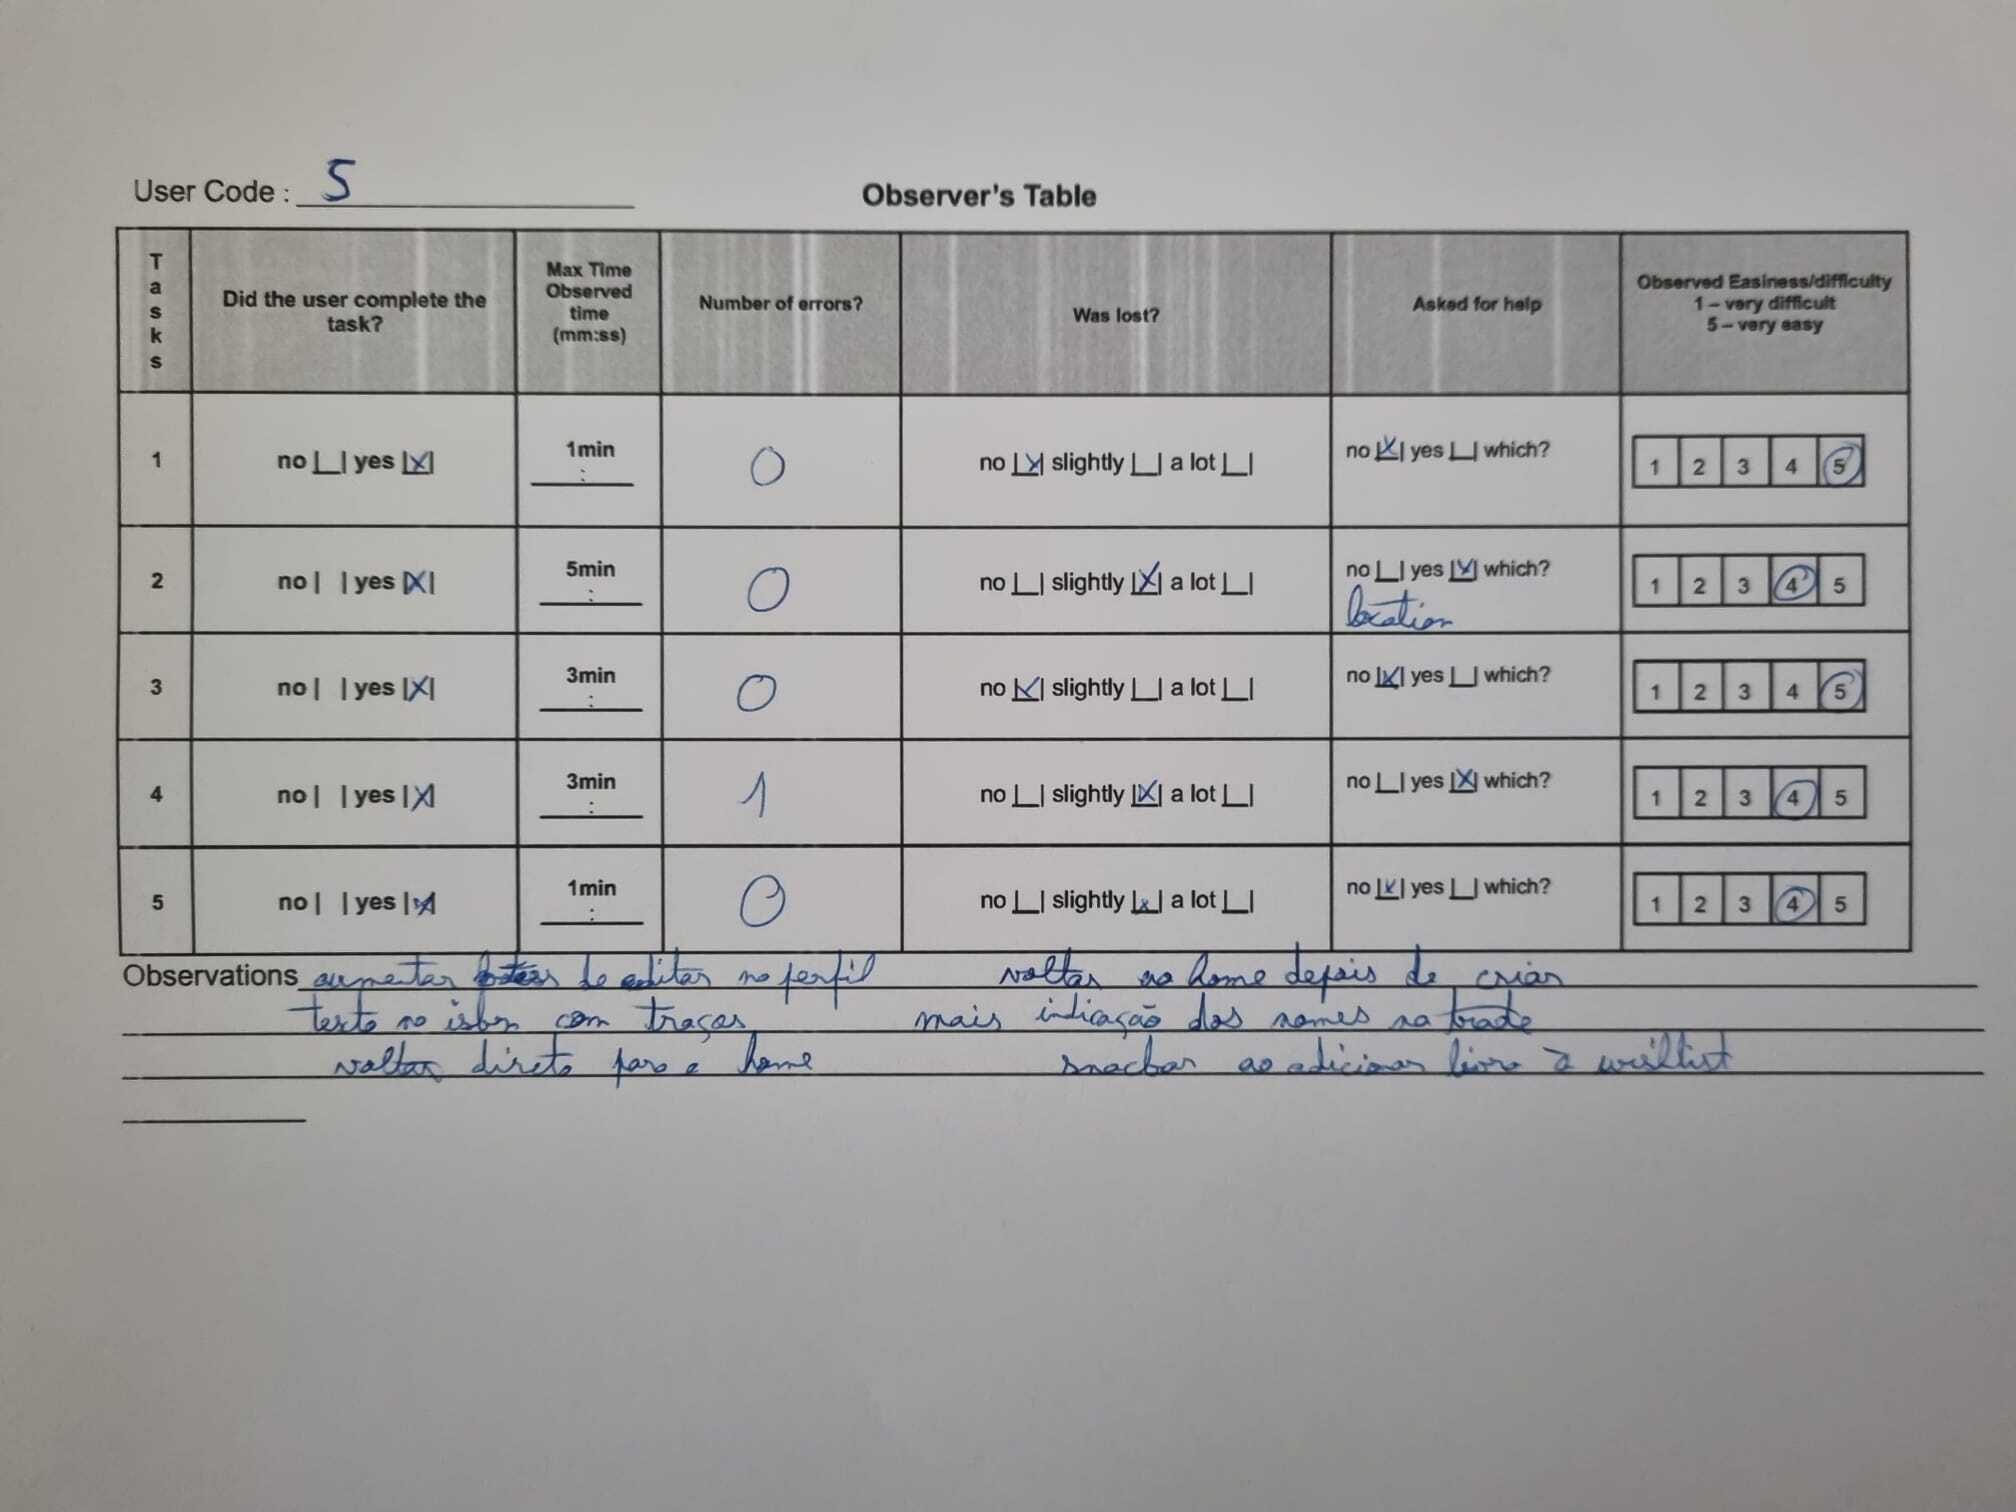 User Code : 5
Observer's Table
Tasks
Did the user complete the task?
Max Time Observed time (mm:ss)
Number of errors?
Was lost?
Asked for help
Observed Easiness/difficulty
1 – very difficult
5 – very easy
1 no |_| yes |X| 1min : 0 no |X| slightly |_| a lot |_| no |X| yes |_| which? 1 2 3 4 5
2 no | | yes |X| 5min : 0 no |_| slightly |X| a lot |_| no |_| yes |X| which? location 1 2 3 4 5
3 no | | yes |X| 3min : 0 no |X| slightly |_| a lot |_| no |X| yes |_| which? 1 2 3 4 5
4 no | | yes |X| 3min : 1 no |_| slightly |X| a lot |_| no |_| yes |X| which? 1 2 3 4 5
5 no | | yes |X| 1min : 0 no |_| slightly |x| a lot |_| no |x| yes |_| which? 1 2 3 4 5
Observations aumentar de editar no perfil voltar ao home depois de criar
texto no isbn com traços mais indicação dos nomes na trade
voltar direto para a home snacbar ao adicionar livro à wishlist